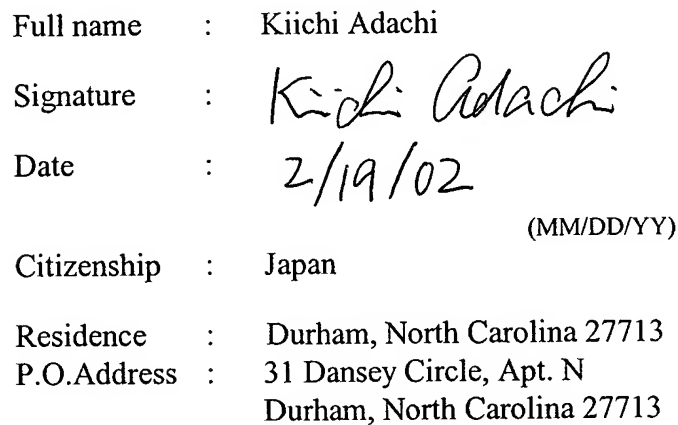 Full name : Kiichi Adachi
Signature : Kiichi Adachi
Date : 2/19/02
(MM/DD/YY)
Citizenship : Japan
Residence : Durham, North Carolina 27713
P.O.Address : 31 Dansey Circle, Apt. N
Durham, North Carolina 27713